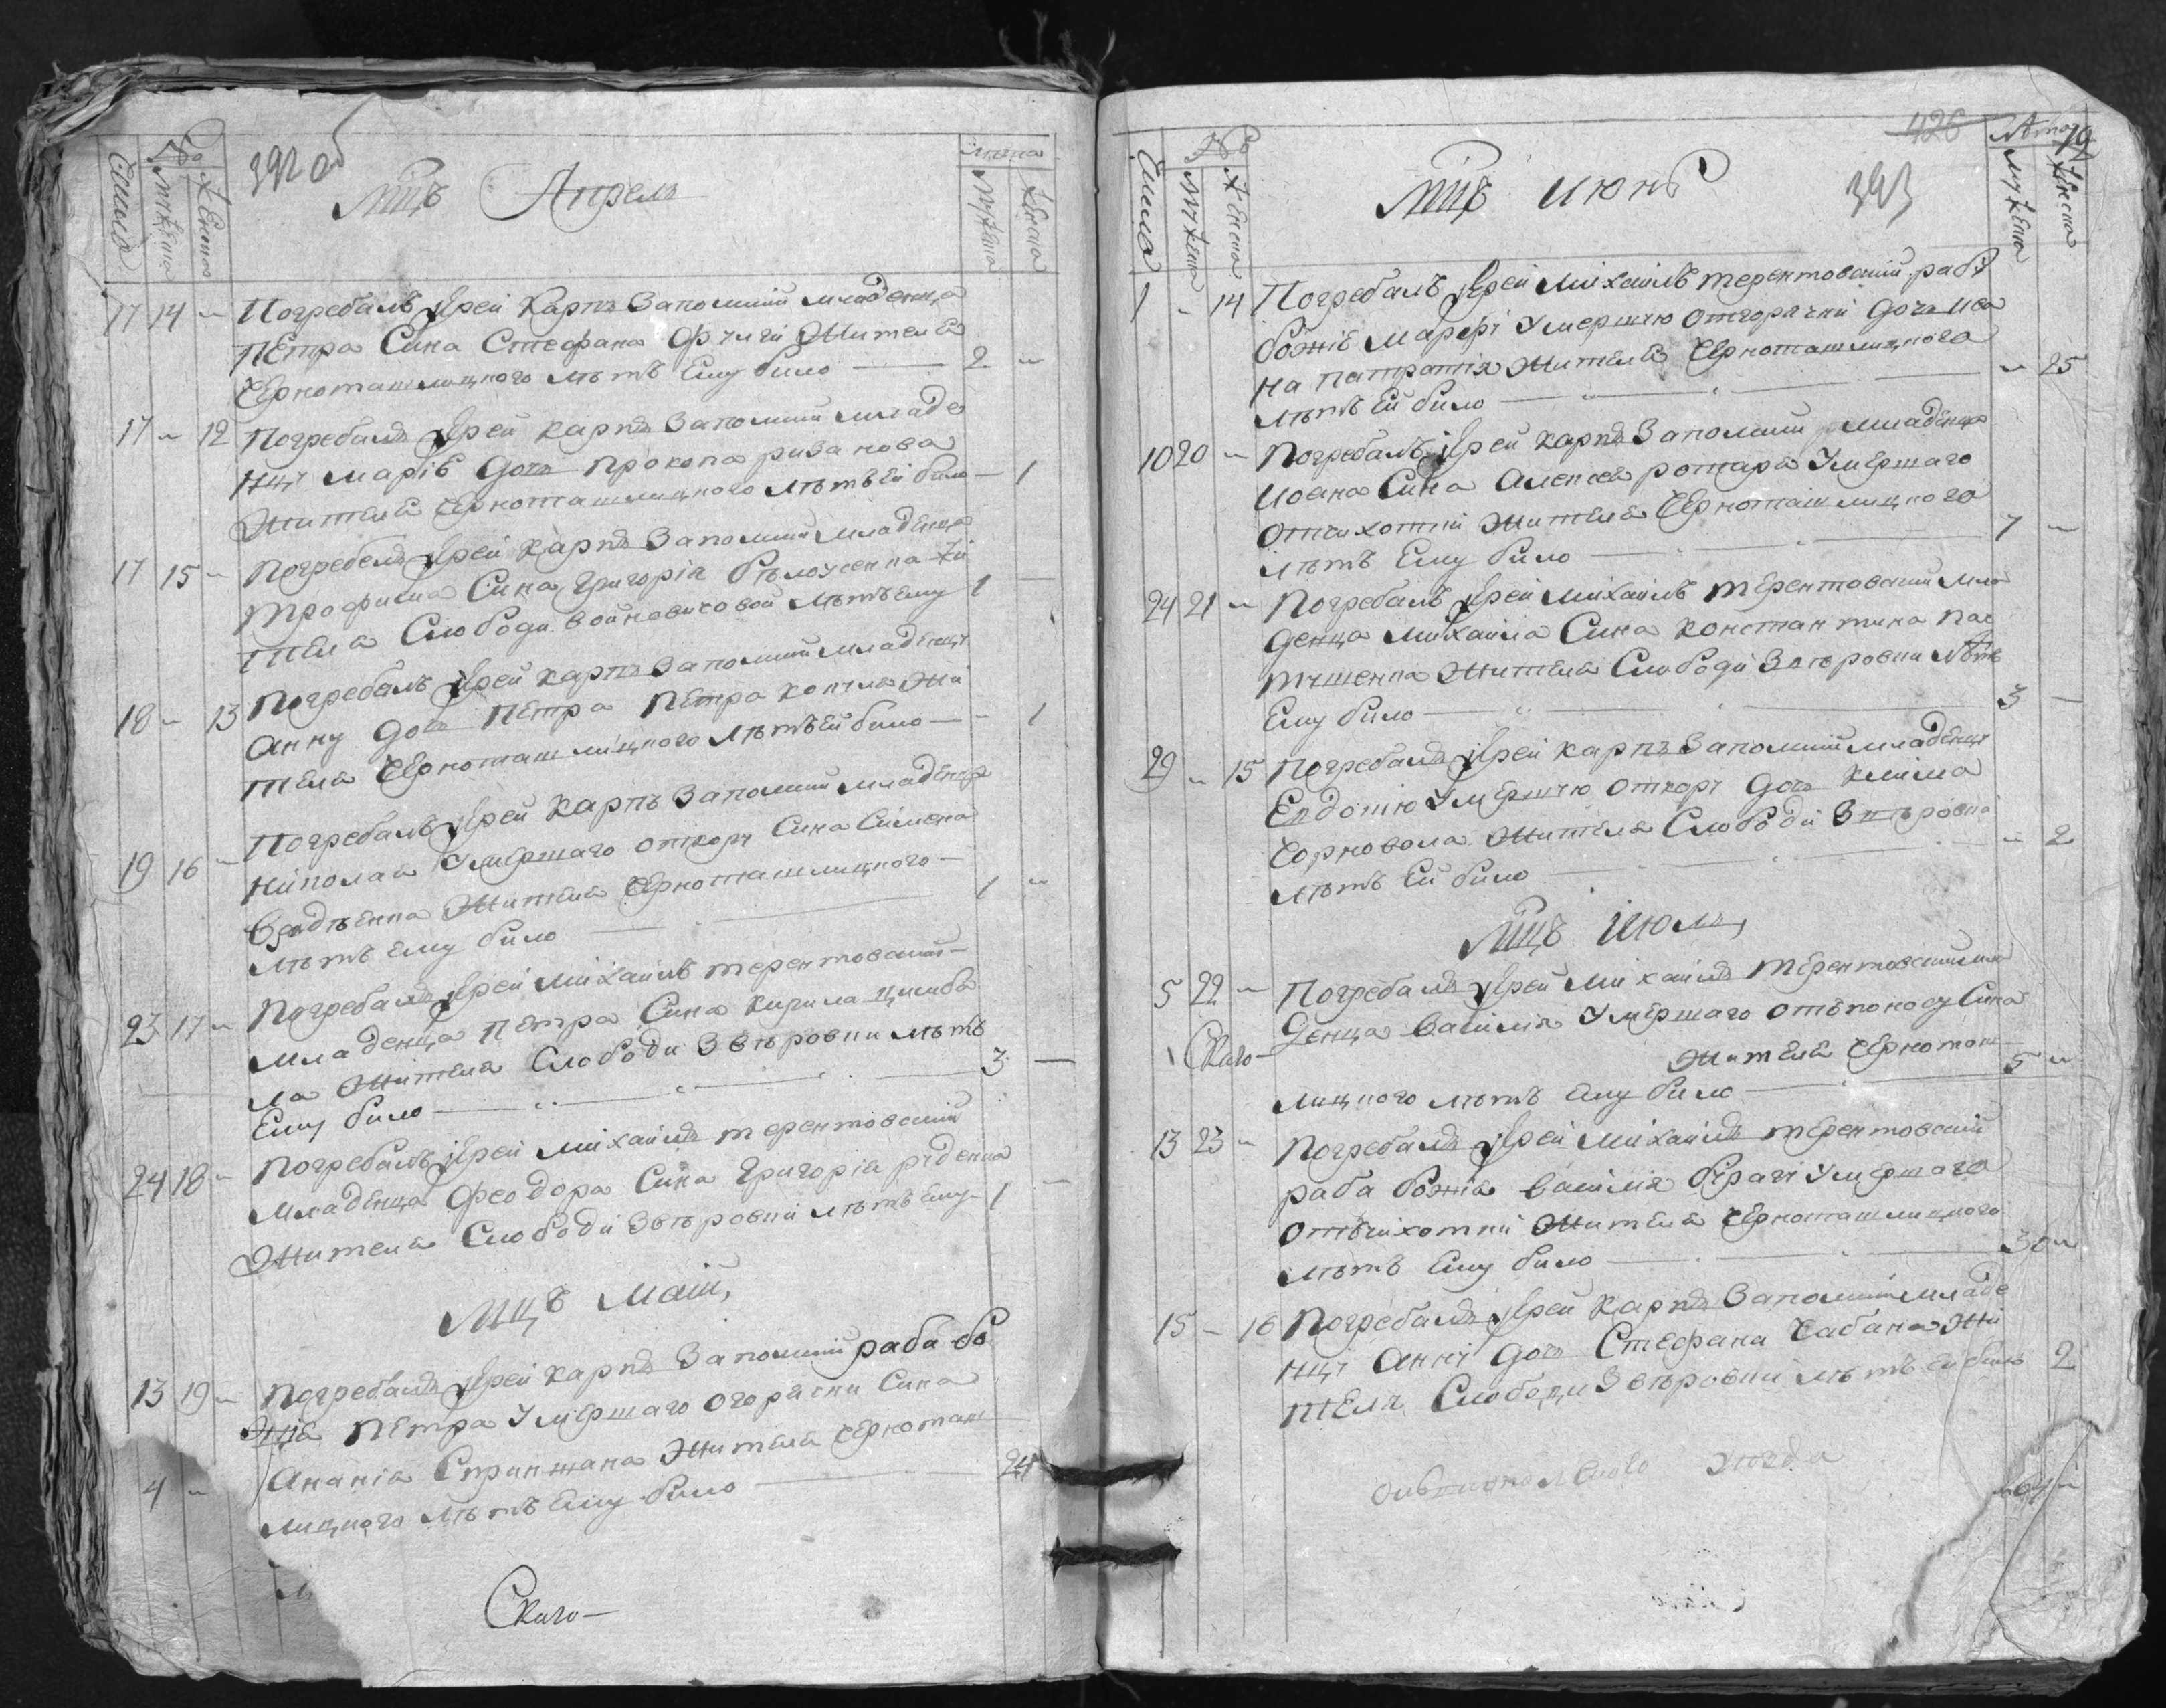 392 об
Числа
№
Мужеска
Женска
Мцъ Апреля
Лета
Мужеска
Женска
17 14 „ Погребалъ Іерей Карпъ Заполскій младенца
Петра Сина Стефана Жителя
Черноташлицкого лѣтъ Ему било — 2 „
17 „ 12 Погребалъ Іерей Карпъ Заполскій младе
нці Маріѣ Дочь Прокопа ризанова
Жителя Черноташлицкого лѣтъ Ей било — 1
17 15 „ Погребалъ Іерей Карпъ Заполскій младенца
Трофима Сина Григорія бѣлоусенка Жи
теля Слободи войновичовой лѣтъ Ему 1 —
18 „ 13 Погребалъ Іерей Карпъ Заполскій младенци
Анну Дочь Петра Петра Жи
теля Черноташлицкого лѣтъ Ей било — „ 1
19 16 „ Погребалъ Іерей Карпъ Заполскій младенца
Николая Умершаго откори Сина Симена
Жителя Черноташлицкого —
лѣтъ ему било — 1 „
23 17 „ Погребалъ Іерей Михаилъ терентовскій —
младенца Петра Сина Кирила цимба
ла Жителя Слободи Звѣровки лѣтъ
Ему било — 3 —
24 18 „ Погребалъ Іерей Михаилъ терентовскій
младенца Феодора Сина Григорія руденка
Жителя Слободи Звѣровки лѣтъ Ему 1 —
Мцъ Маій,
13 19 „ Погребалъ Іерей Карпъ Заполскій раба бо
жія Петра Умершаго огорячки Сина
4 „ Ананія Жителя Черноташ
лицкого лѣтъ Ему било — 24
Скаго —
426
393
Числа
№
Мужеска
Женска
Мцъ Июнь
Лета
Мужеска
Женска
1 „ 14 Погребалъ Іерей Михаилъ терентовскій рабѣ
божіѣ Марфі Умершую отгорячки Дочь Ива
на Жителя Черноташлицкого
лѣтъ Ей било — „ 25
10 20 „ Погребалъ Іерей Карпъ Заполскій младенца
Иоана Сина Алексея ротаря Умершаго
отчихотки Жителя Черноташлицкого
лѣтъ Ему било — 7 „
24 21 „ Погребалъ Іерей Михаилъ терентовскій мла
денца Михаила Сина Константина
Жителя Слободи Звѣровки лѣтъ
Ему било — 3 —
29 „ 15 Погребалъ Іерей Карпъ Заполскій младенци
Евдокію Умершую откори Дочь Клима
Чорновола Жителя Слободи Звѣровки
лѣтъ Ей било — „ 2
Мцъ Июль,
5 22 „ Погребалъ Іерей Михаилъ терентовскій мла
денца Василия Умершаго отъ поносу Сина
Скаго — Жителя Черноташ
лицкого лѣтъ Ему било — 5 „
13 23 „ Погребалъ Іерей Михаилъ терентовскій
раба божія Василия Умершаго
отъ чихотки Жителя Черноташлицкого
лѣтъ Ему било — 30 „
15 — 16 Погребалъ Іерей Карпъ Заполскій младе
нці Анні Дочь Стефана Чабана Жи
теля Слободи Звѣровки лѣтъ Ей било 2
уезда